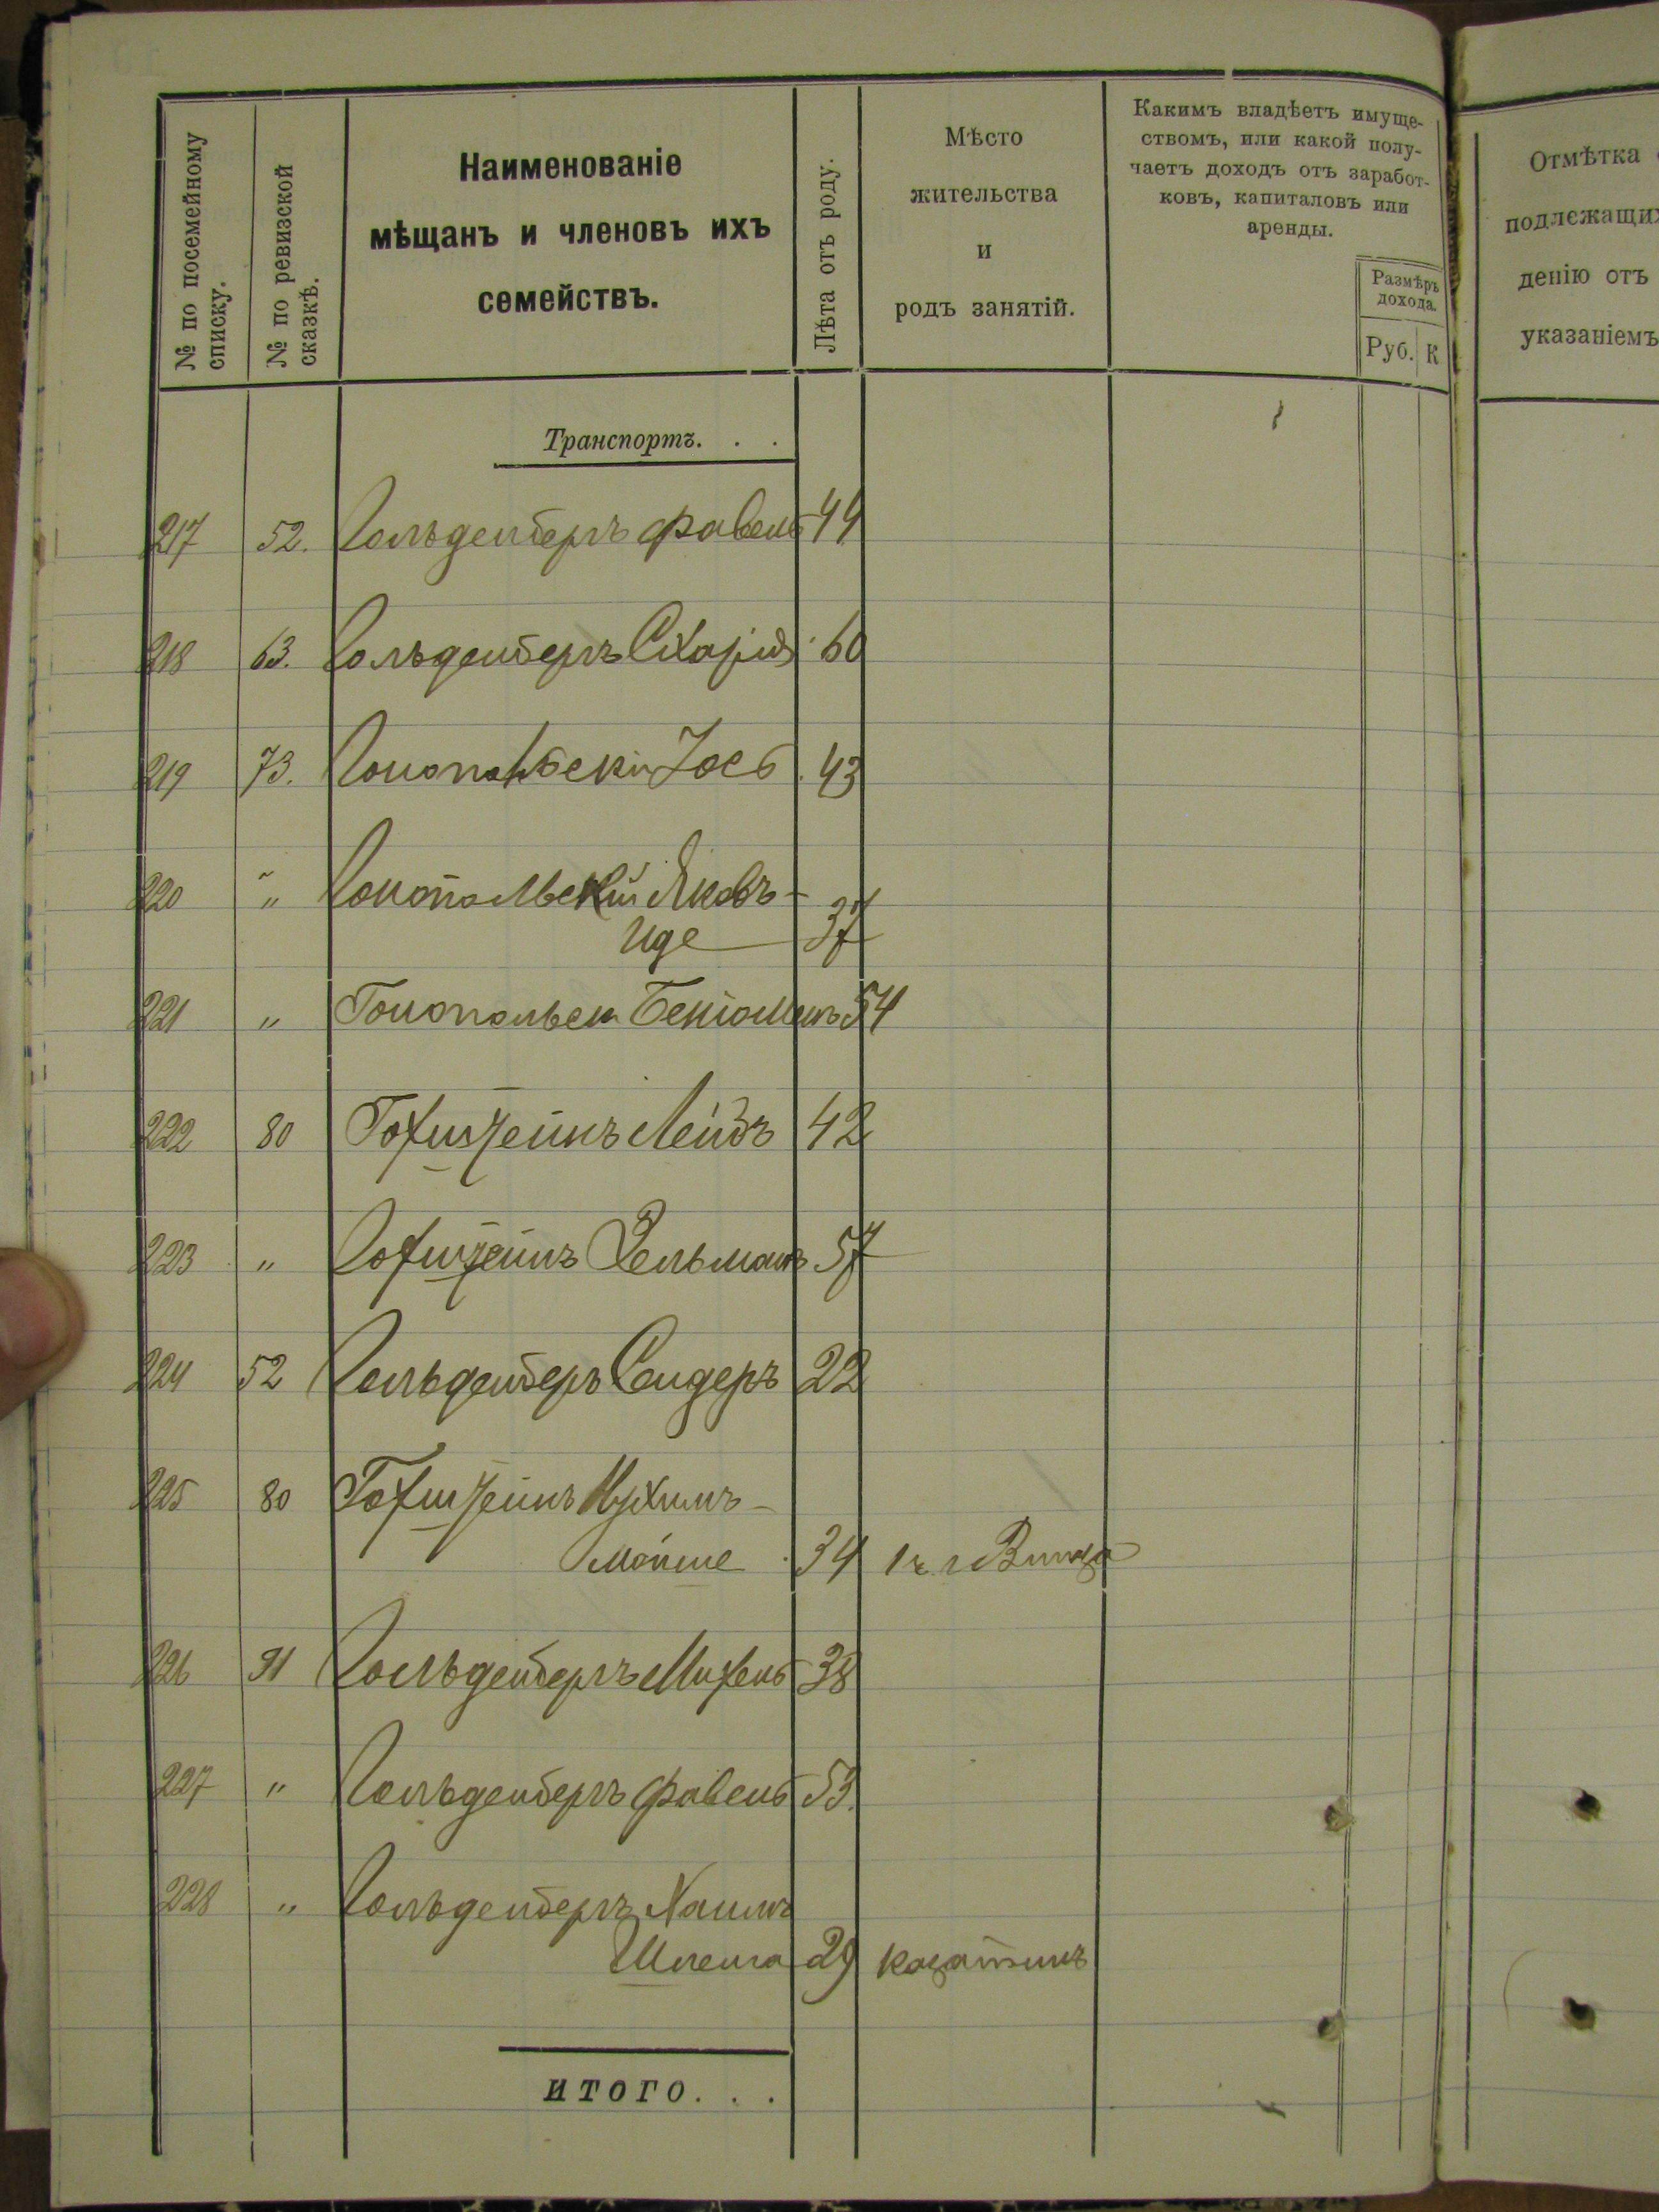 № по посемейному списку.
№ по ревизской сказкѣ.
Наименованіе
мѣщанъ и членовъ ихъ
семействъ.
Лѣта отъ роду.
Мѣсто
жительства
и
родъ занятій.
Какимъ владѣетъ имуще-
ствомъ, или какой полу-
чаетъ доходъ отъ заработ-
ковъ, капиталовъ или
аренды.
Размѣръ
дохода.
Руб. К
Отмѣтка
подлежащих
денію отъ
указаніемъ
Транспортъ. . .
217 52. Гольденбергъ Фавель 44
218 63. Гольденбергъ 60
219 73. Гонопольскій Іось 43
220 " Гонопольскій Яковъ-
Иде 37
221 " Гонопольск Беніоминъ 54
222 80 Гофштейнъ Лейбъ 42
223 " Гофштейнъ Зельманъ 57
224 52 Гольденберъ Сендеръ 22
225 80 Гофштейнъ Нухимъ-
Мойше 34
226 91 Гольденбергъ Михель 38
227 " Гольденбергъ Фавель 53.
228 " Гольденбергъ Хаимъ
Шлема 29 Козатинъ
ИТОГО. . .